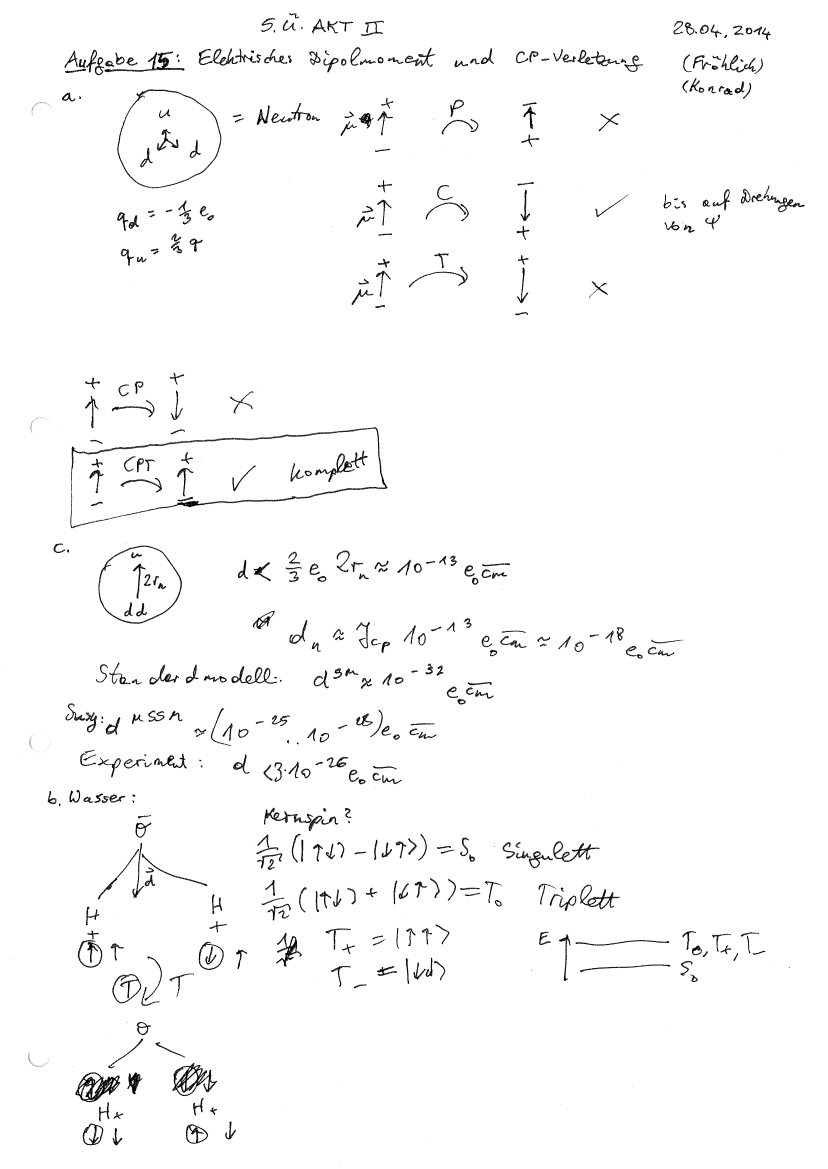 5. Ü. AKT II 28.04.2014
Aufgabe 15: Elektrisches Dipolmoment und CP-Verletzung (Fröhlich)
(Konrad)
a.
u
d d
= Neutron
q_d = -1/3 e₀
q_u = 2/3 q
μ⃗ + ↑ - P - ↑ + ×
μ⃗ + ↑ - C - ↓ + ✓ bis auf Drehungen
von Ψ
μ⃗ + ↑ - T + ↓ - ×
+ ↑ - CP + ↓ - ×
+ ↑ - CPT + ↑ - ✓ komplett
c.
u
↑ 2r_n
dd
d < 2/3 e₀ 2r_n ≈ 10^-13 e₀ cm
d_n ≈ J_cp 10^-13 e₀ cm ≈ 10^-18 e₀ cm
Standardmodell: d^SM ≈ 10^-32 e₀ cm
Susy: d^MSSM ≈ (10^-25 .. 10^-28) e₀ cm
Experiment: d < 3·10^-26 e₀ cm
b. Wasser:
Kernspin?
O
d⃗
H H
+ +
↑ ↑ ↓ ↑
T T
1/√2 (|↑↓⟩ - |↓↑⟩) = S₀ Singulett
1/√2 (|↑↓⟩ + |↓↑⟩) = T₀ Triplett
T₊ = |↑↑⟩
T₋ = |↓↓⟩
E ↑ T₀, T₊, T₋
S₀
O
H+ H+
↓ ↓ ↑ ↓